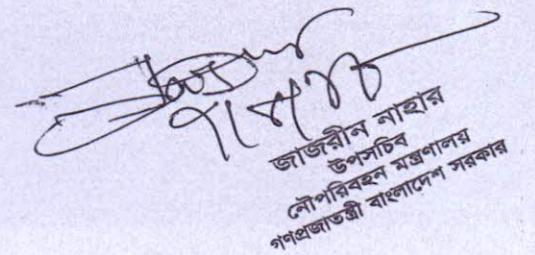 জাজরীন নাহার
উপসচিব
নৌপরিবহন মন্ত্রণালয়
গণপ্রজাতন্ত্রী বাংলাদেশ সরকার